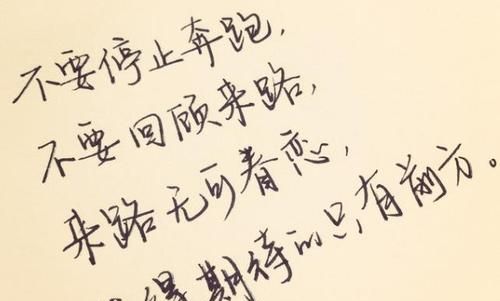 不要停止奔跑,
不要回顾来路,
来路无可眷恋,
得期待的只有前方。